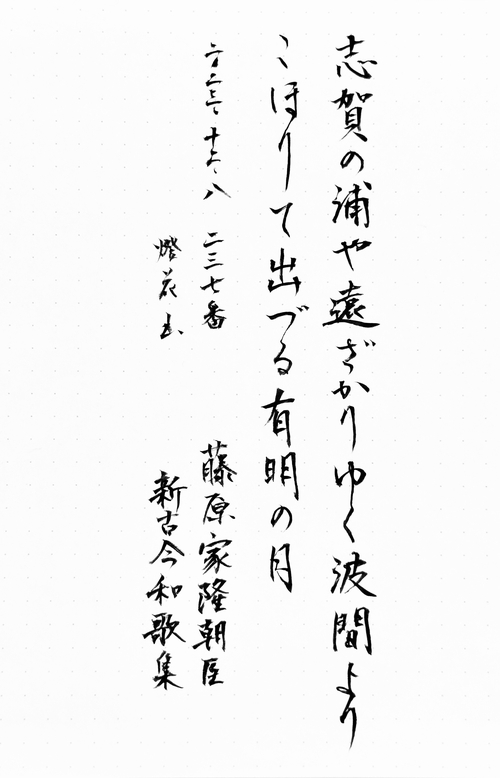 志賀の浦や遠ざかりゆく波間より
こほりて出づる有明の月
二三七番
藤原家隆朝臣
燈花书
新古今和歌集